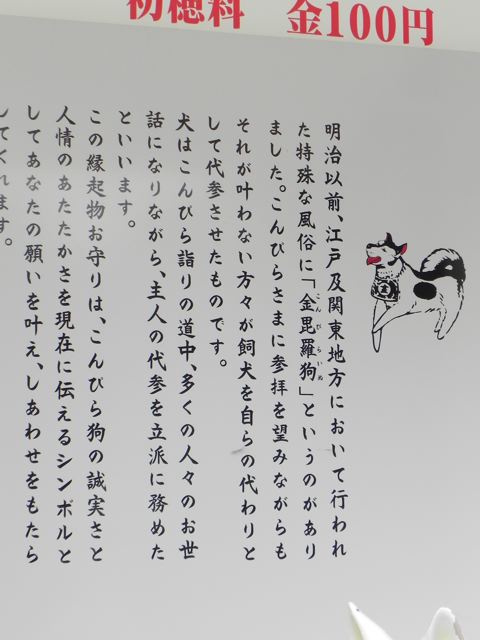 初穂料　金100円
明治以前、江戸及関東地方において行われ
た特殊な風俗に「金毘羅狗」というのがあり
こんぴらいぬ
ました。こんぴらさまに参拝を望みながらも
それが叶わない方々が飼犬を自らの代わりと
して代参させたものです。
犬はこんぴら詣りの道中、多くの人々のお世
話になりながら、主人の代参を立派に務めた
といいます。
この縁起物お守りは、こんぴら狗の誠実さと
人情のあたたかさを現在に伝えるシンボルと
してあなたの願いを叶え、しあわせをもたら
してくれます。